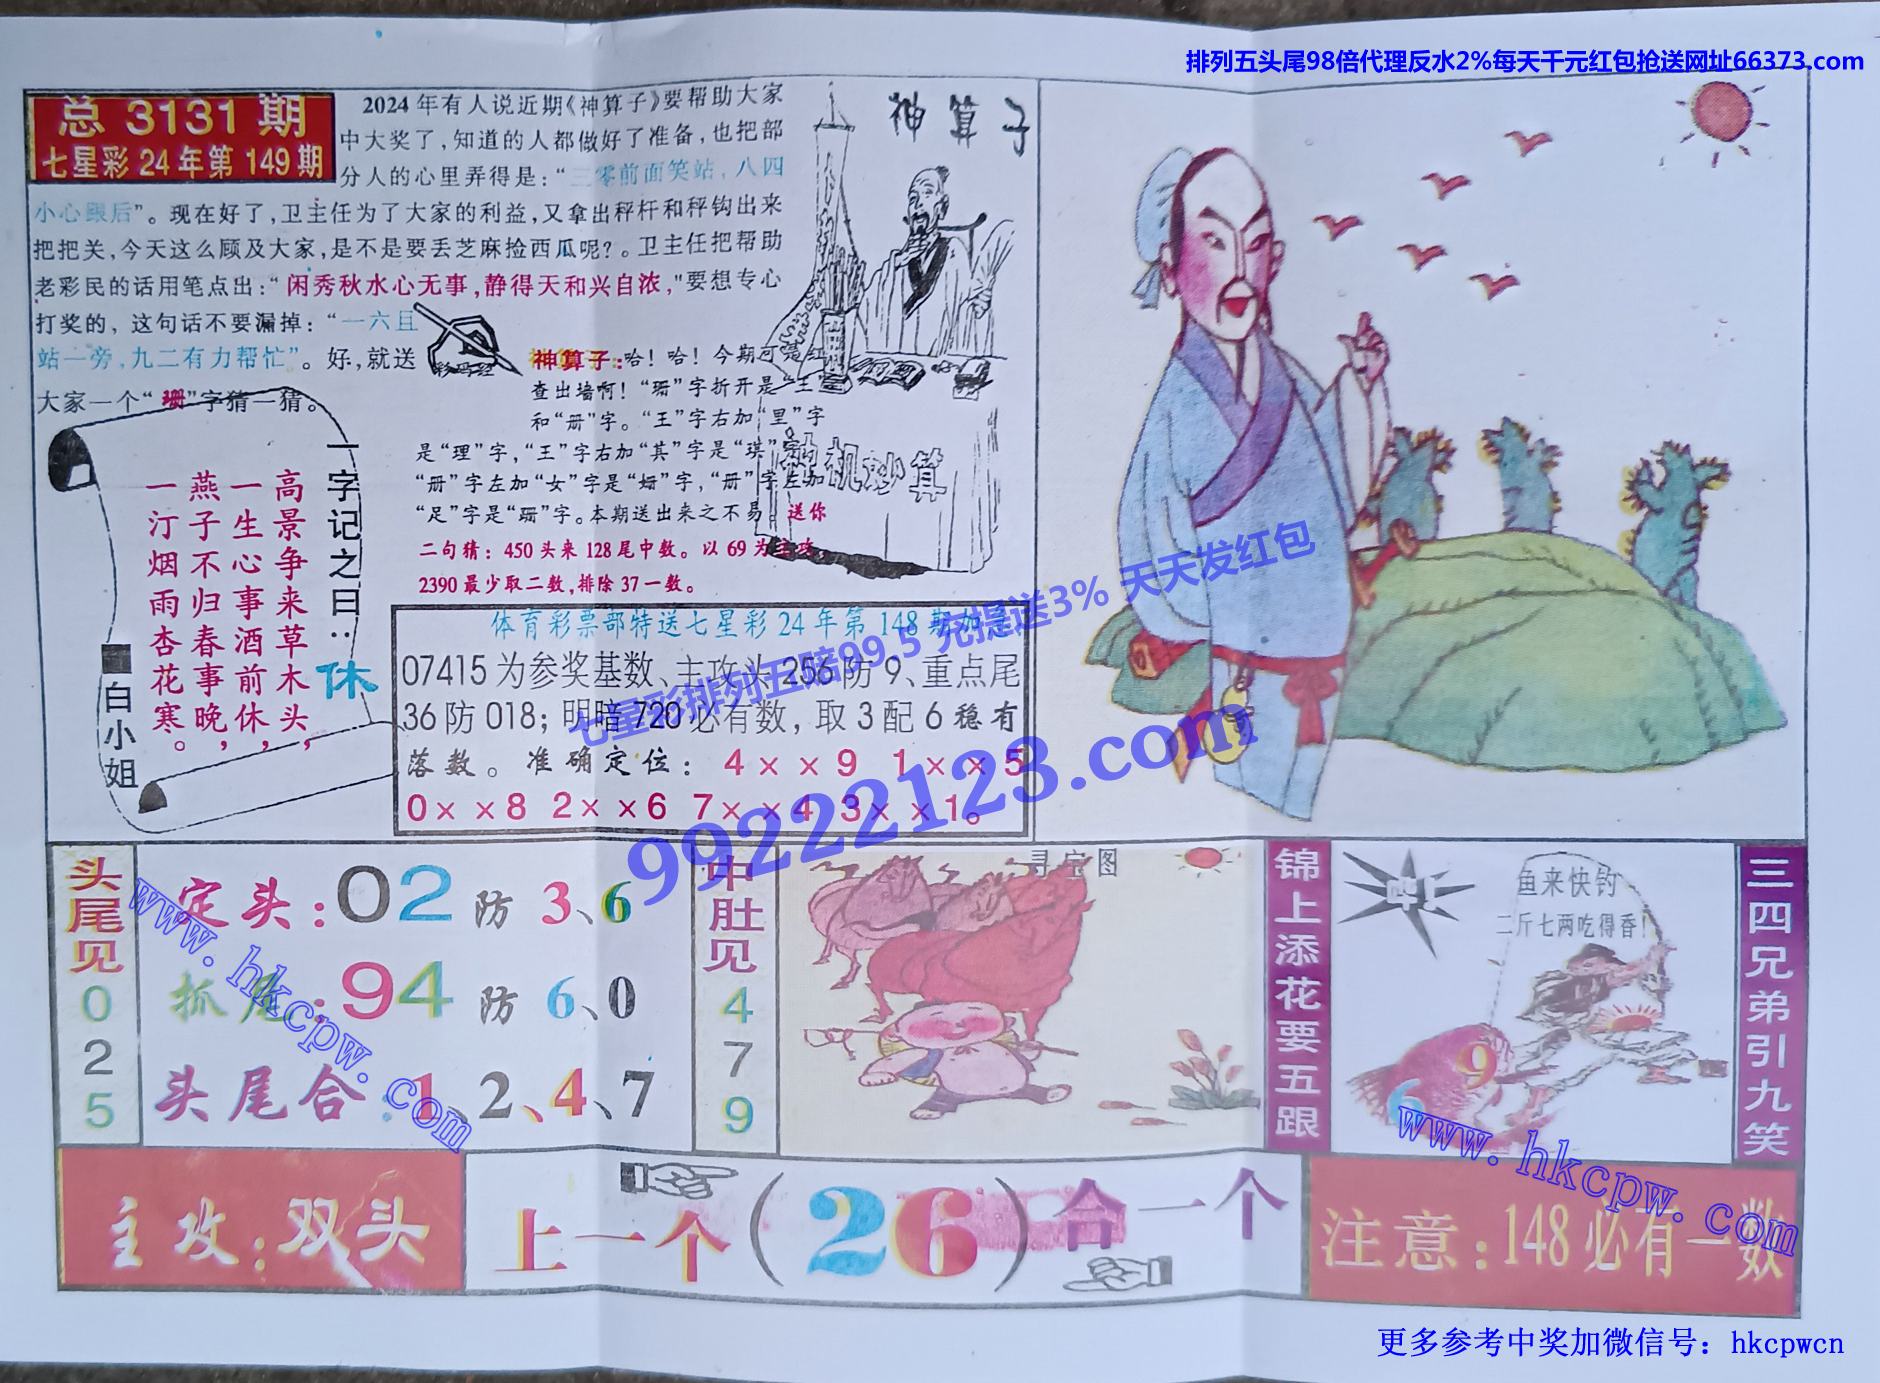 排列五头尾98倍代理反水2%每天千元红包抢送网址66373.com
总 3131 期
七星彩 24 年第 149 期
2024 年有人说近期《神算子》要帮助大家
中大奖了，知道的人都做好了准备，也把部
分人的心里弄得是：“三零前面笑站，八四
小心跟后”。现在好了，卫主任为了大家的利益，又拿出秤杆和秤钩出来
把把关，今天这么顾及大家，是不是要丢芝麻捡西瓜呢？。卫主任把帮助
老彩民的话用笔点出：“闲秀秋水心无事，静得天和兴自浓，”要想专心
打奖的，这句话不要漏掉：“一六且
站一旁，九二有力帮忙”。好，就送
大家一个“珊”字猜一猜。
神算子
神机妙算
神算子：哈！哈！今期可楚红
查出墙啊！“珊”字折开是“王”
和“册”字。“王”字右加“里”字
是“理”字，“王”字右加“其”字是“琪”字
“册”字左加“女”字是“姗”字，“册”字左加
“足”字是“跚”字。本期送出来之不易。送你
二句猜：450 头来 128 尾中数。以 69 为主攻，
2390 最少取二数，排除 37 一数。
一字记之曰：
休
高景争来草木头，
一生心事酒前休，
燕子不归春事晚，
一汀烟雨杏花寒。
白小姐
体育彩票部特送七星彩 24 年第 148 期加急
07415 为参奖基数、主攻头 256 防 9、重点尾
36 防 018；明暗 720 必有数，取 3 配 6 稳有
落数。准确定位：4××9 1××5
0××8 2××6 7××4 3××1。
七星彩排列五赔99.5 充提送3% 天天发红包
99222123.com
头尾见025
定头：02 防 3、6
抓尾：94 防 6、0
头尾合：1、2、4、7
中肚见479
寻宝图
锦上添花要五跟
鱼来快钓
二斤七两吃得香！
9
6
三四兄弟引九笑
www.hkcpw.com
www.hkcpw.com
主攻：双头
上一个（26）合一个
注意：148 必有一数
更多参考中奖加微信号：hkcpwcn